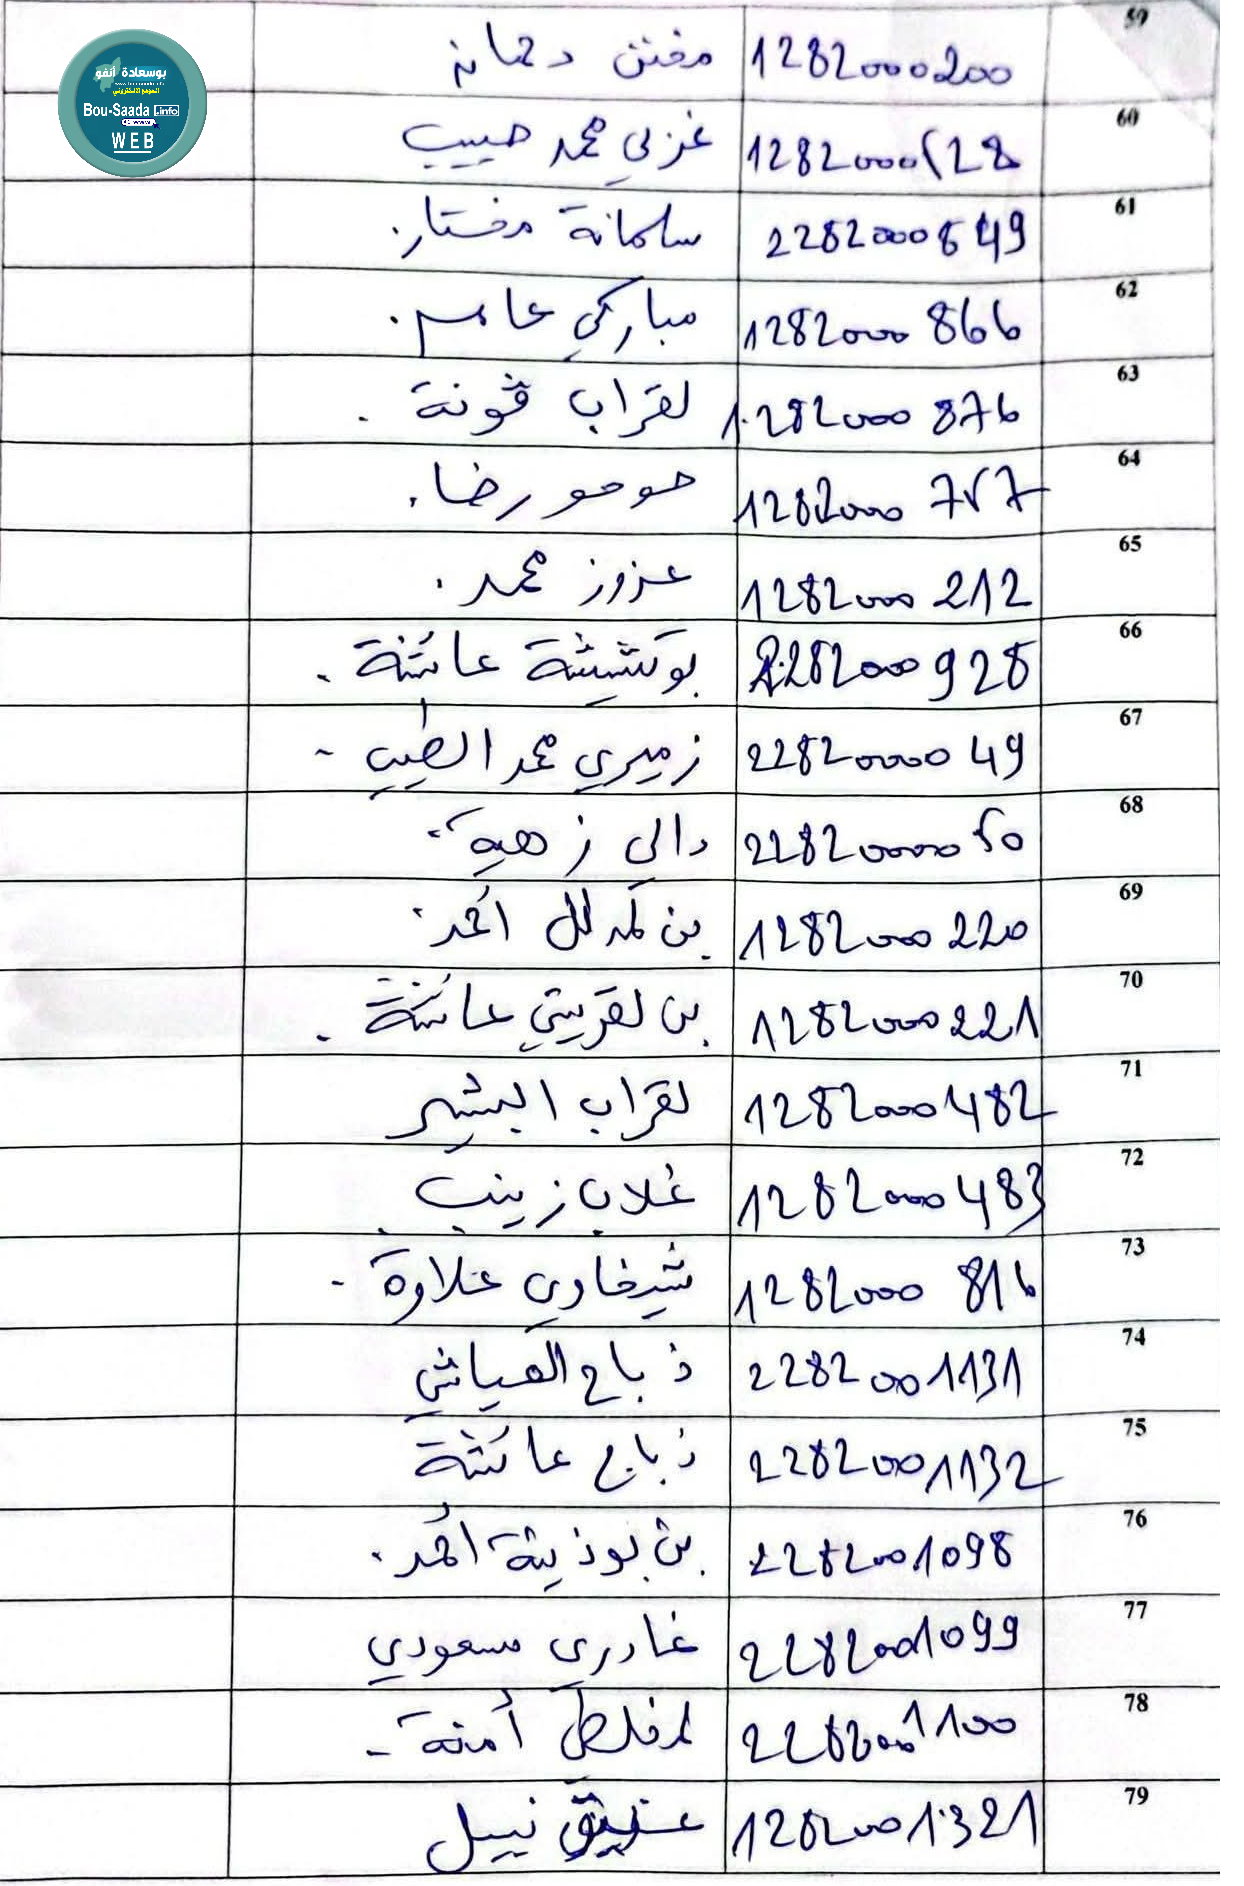 بوسعادة أنفو
الموقع الالكتروني
Bou-Saada .info
WEB
59 1282000200 مفتش دحمانة
60 1282000128 غزلي محمد حبيب
61 2282000849 سلمانة مختار.
62 1282000866 مباركي عامر.
63 1282000876 لقراب فونة.
64 1282000757 حوحو رضا.
65 1282000212 عزوز محمد.
66 2282000928 بوكشيشة عائشة.
67 2282000049 زميري محمد الطيب
68 2282000050 دالي زهية
69 1282000220 بن احمد
70 1282000221 بن لقريشي عائشة.
71 1282000482 لقراب البشير
72 1282000483 غلاب زينب
73 1282000816 شيخاوي علاوة
74 2282001131 ذباح العياشي
75 2282001132 ذباح عائشة
76 2282001098 بن بوذينة احمد.
77 2282001099 غادري مسعودي
78 2282001100 لمخلط أمنة
79 1282001321 نبيل